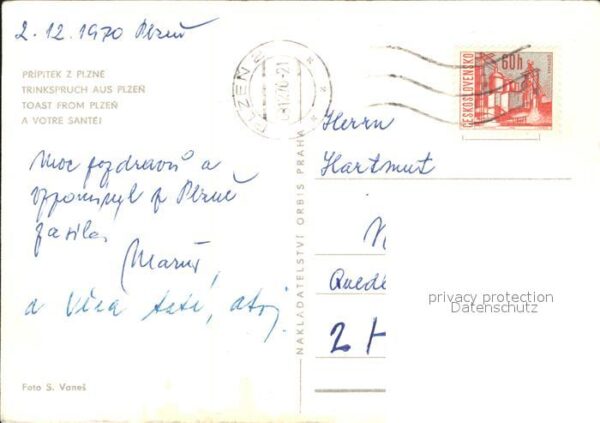 2.12.1970 Plzeň
PŘÍPITEK Z PLZNĚ
TRINKSPRUCH AUS PLZEŇ
TOAST FROM PLZEŇ
A VOTRE SANTÉ!
Moc pozdravů a
vzpomínek z Plzně
zasílá
a Věra také, ahoj.
Foto S. Vaneš
NAKLADATELSTVÍ ORBIS PRAHA
PLZEŇ
ČESKOSLOVENSKO
60h
Herrn
Hartmut
privacy protection
Datenschutz